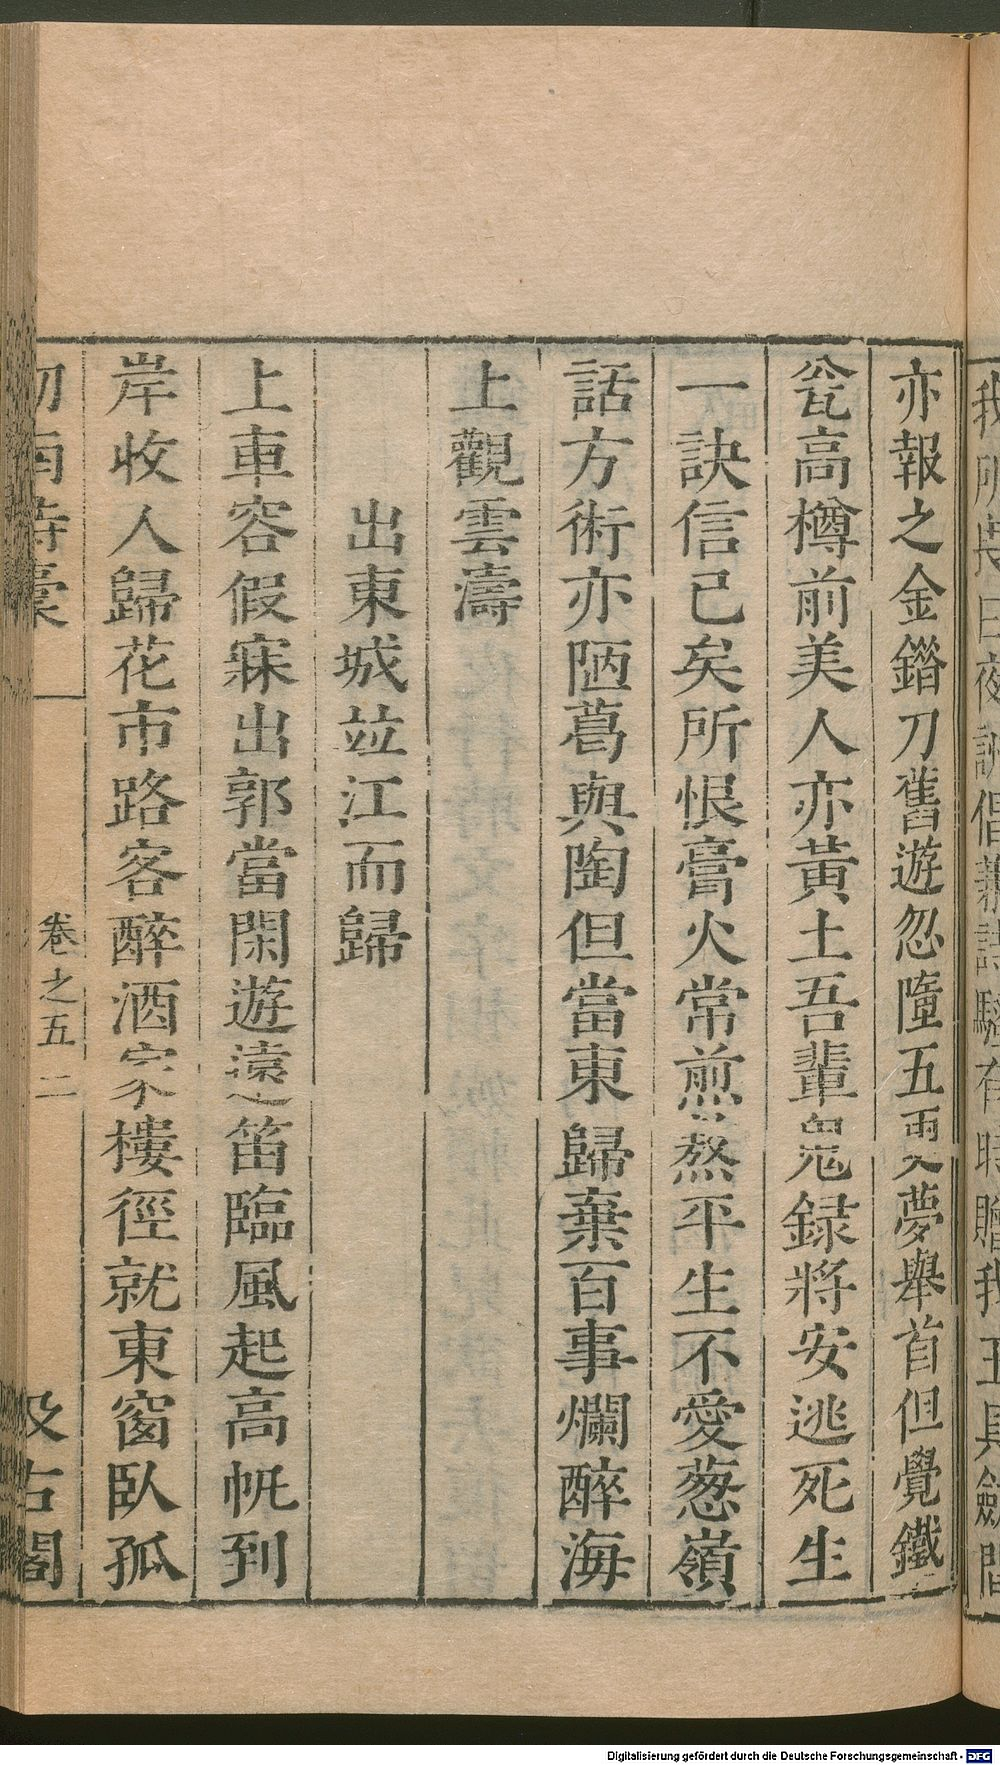 亦報之金錯刀舊遊忽墮五更夢舉首但覺鐵
瓮高樽前美人亦黃土吾輩鬼録將安逃死生
一訣信已矣所恨膏火常煎熬平生不愛葱嶺
話方術亦陋葛與陶但當東歸棄百事爛醉海
上觀雲濤
出東城竝江而歸
上車容假寐出郭當閑遊遠笛臨風起高帆到
岸收人歸花市路客醉酒家樓徑就東窗臥孤
卷之五 二
汲古閣
Digitalisierung gefördert durch die Deutsche Forschungsgemeinschaft - DFG